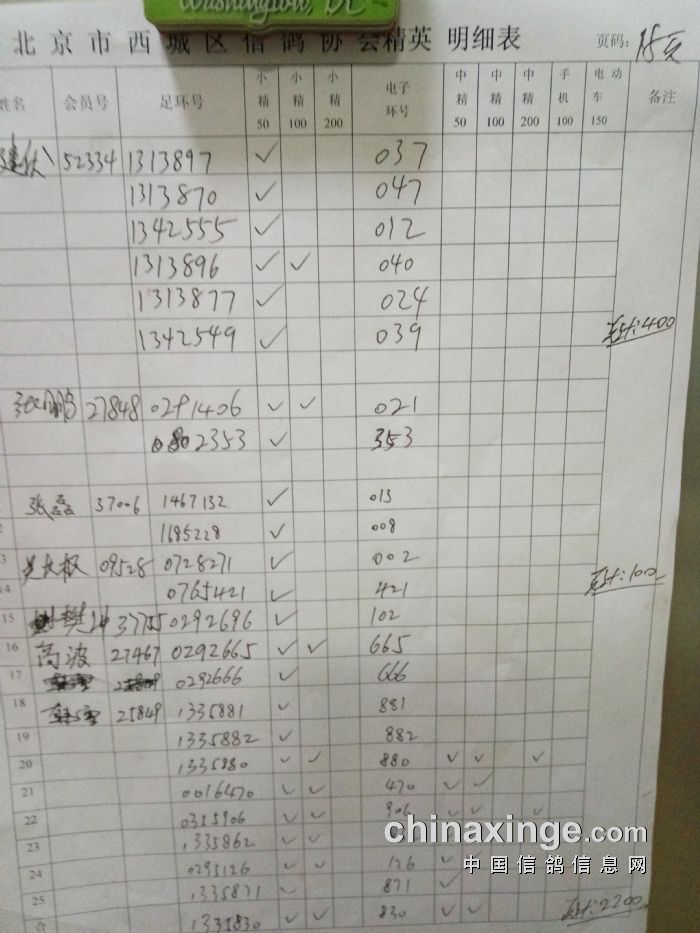 Washington, DC
北京市西城区信鸽协会精英 明细表 页码: 15页
姓名 会员号 足环号 小精50 小精100 小精200 电子环号 中精50 中精100 中精200 手机100 电动车150 备注
52334 1313897 ✓ 037
1313870 ✓ 047
1342555 ✓ 012
1313896 ✓ ✓ 040
1313877 ✓ 024
1342549 ✓ 039 :400
张鹏 27848 0291406 ✓ ✓ 021
0802353 ✓ 353
张磊 37006 1467132 ✓ 013
2 1685228 ✓ 008
3 吴大权 09528 0728271 ✓ 002
14 0765421 ✓ 421 :100
15 樊 37755 0292696 ✓ 102
16 高波 27467 0292665 ✓ ✓ 665
17 0292666 ✓ 666
18 25849 1335881 ✓ 881
19 1335882 ✓ 882
20 1335880 ✓ ✓ 880 ✓ ✓ ✓
21 0016470 ✓ ✓ 470 ✓ ✓
22 0355906 ✓ ✓ 906 ✓ ✓ ✓
23 1335862 ✓ ✓
chinaxinge.com
24 0295126 ✓ ✓ 126 ✓
中国信鸽信息网
25 1335871 ✓ 871 ✓
合 1335830 ✓ ✓ 830 ✓ ✓ :2200